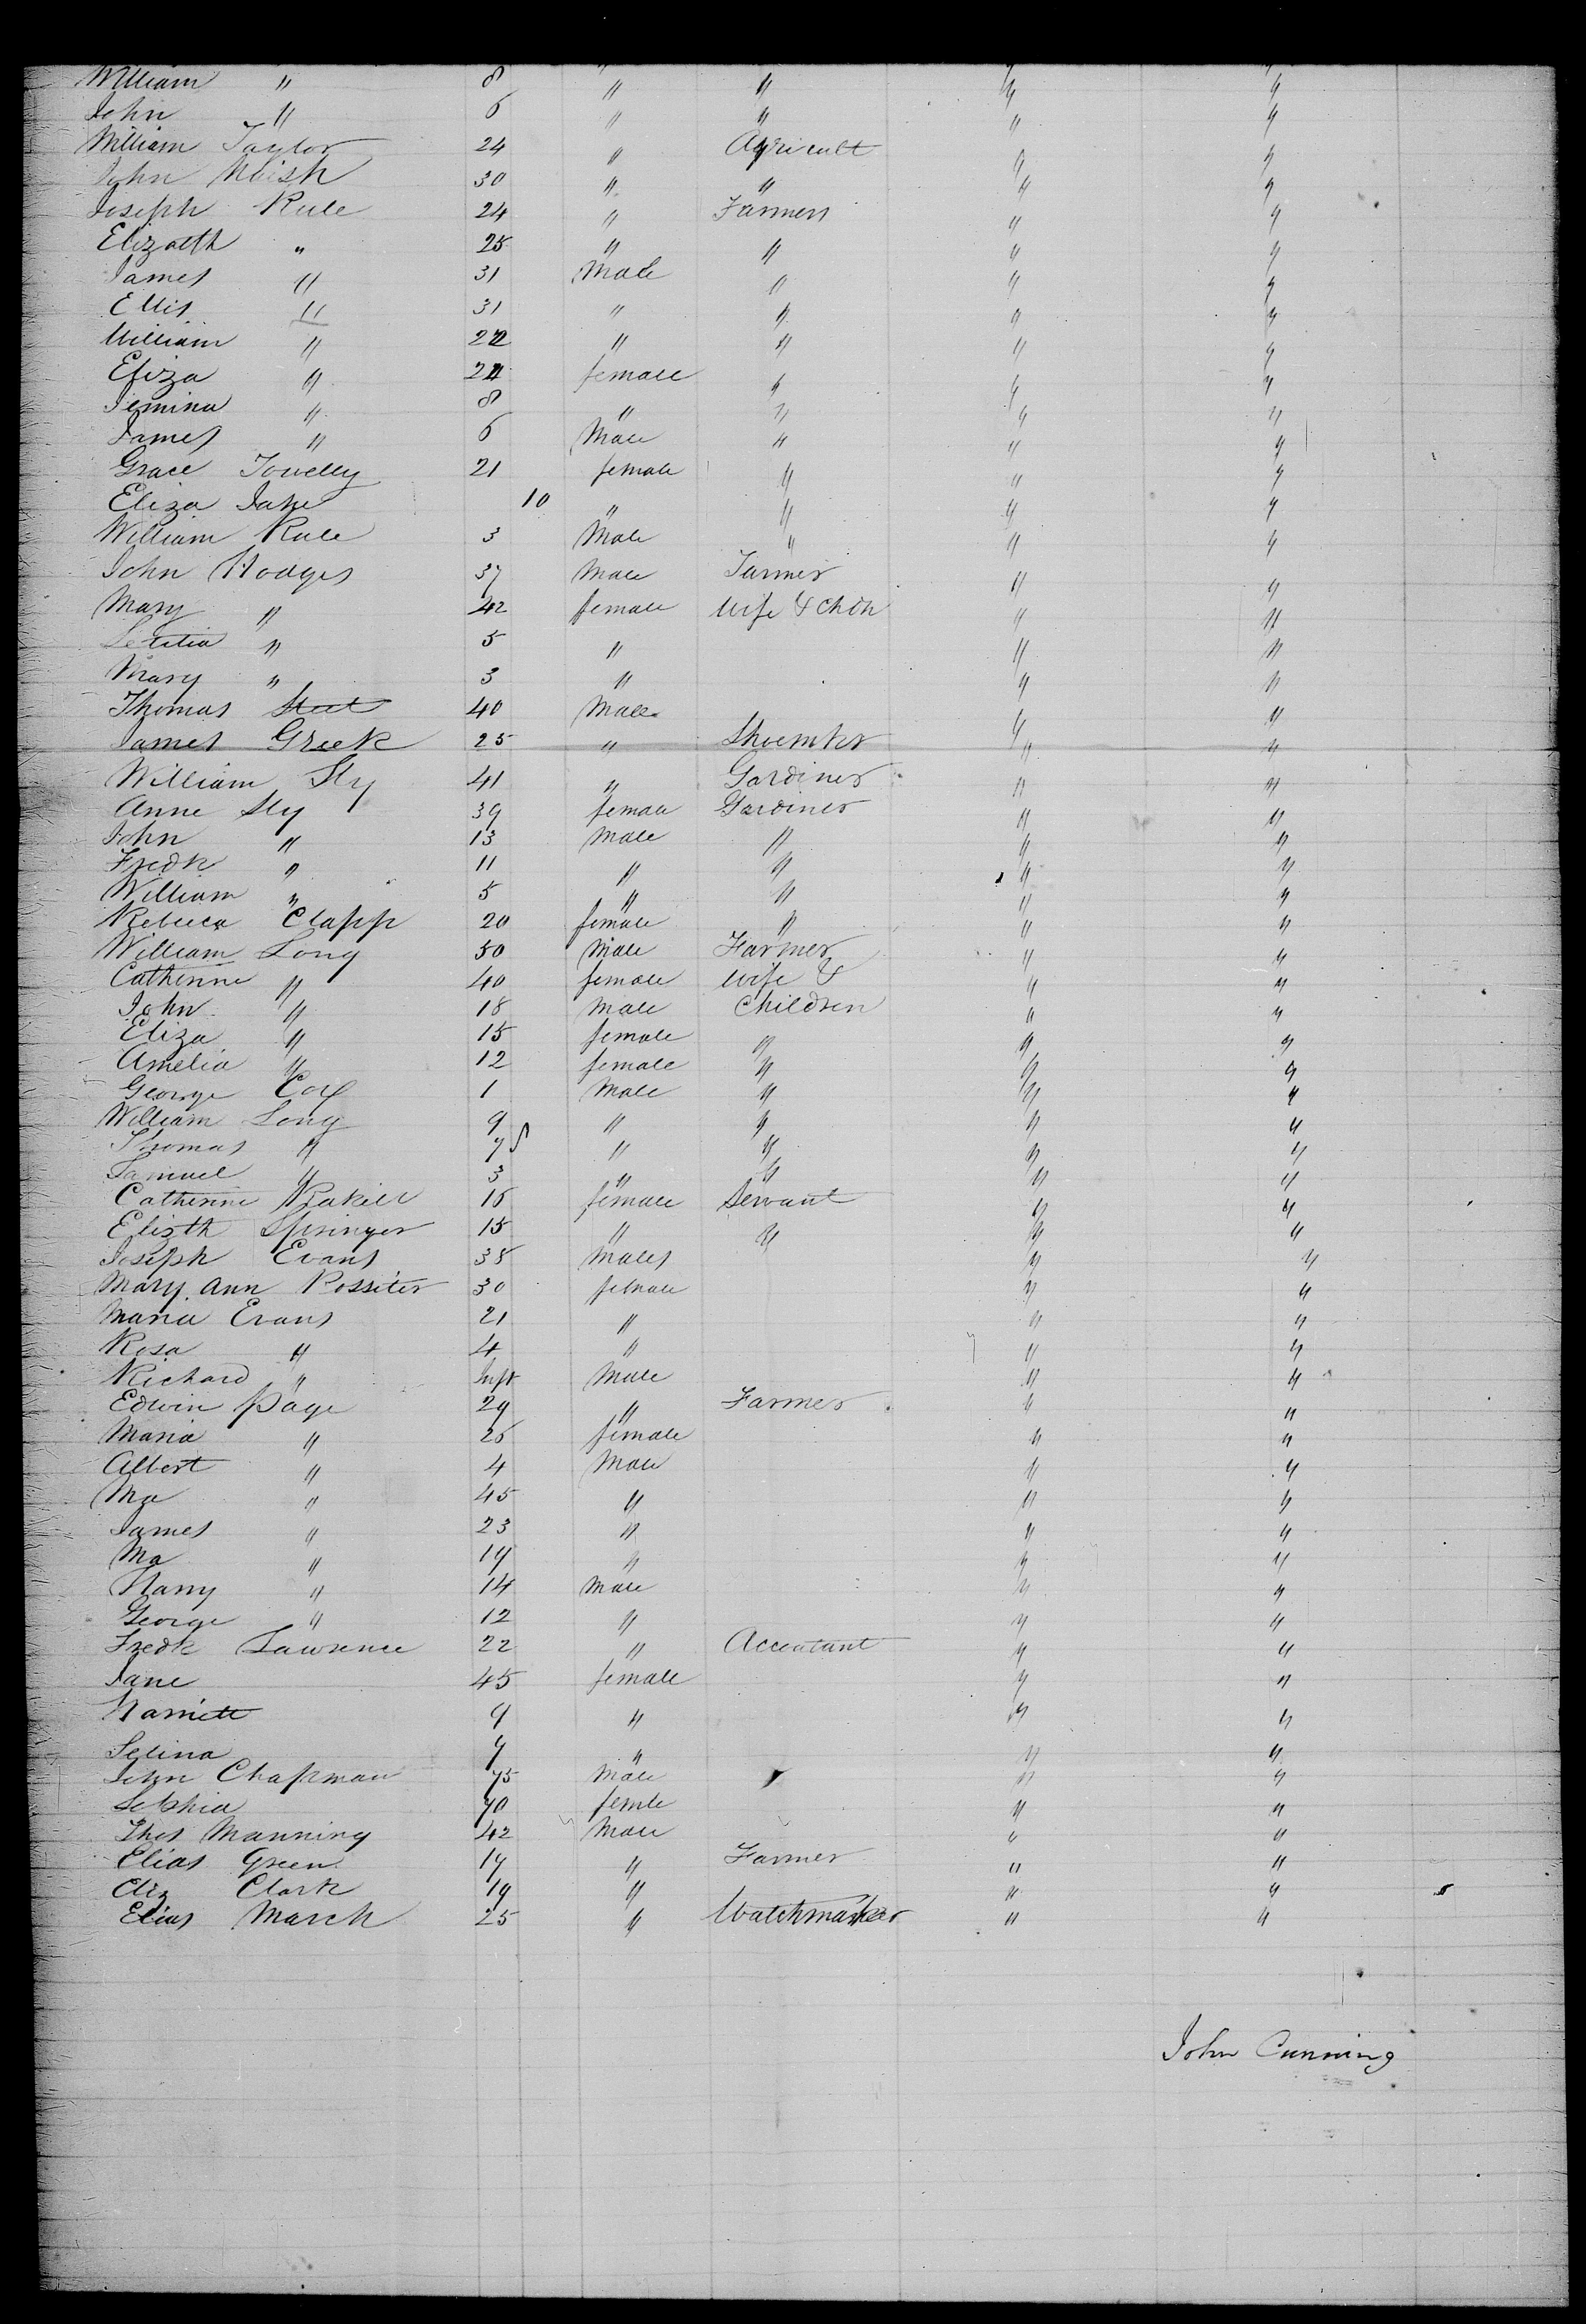 William " 8 " " " "
John " 6 " " " "
William Taylor 24 " Agricult " "
John Naish 30 " " " "
Joseph Rule 24 " Farmers " "
Elizabth " 25 " " " "
James " 31 Male " " "
Ellis " 31 " " " "
William " 22 " " " "
Eliza " female " " "
Jemina " 8 " " " "
James " 6 Male " " "
Grace Towelly 21 female " " "
Eliza Jane 10 " " " "
William Rule 3 Male " " "
John Hodges 37 Male Farmer " "
Mary " 42 female wife & chdn " "
Letitia " 5 " " "
Mary " 3 " " "
Thomas 40 Male " "
James Greek 25 " Shoemkr " "
William Sly 41 " Gardiner " "
Anne Sly 39 female Gardiner " "
John " 13 Male " " "
Fredk " 11 " " " "
William " 5 " " " "
Rebecca Clapp 20 female " " "
William Long 50 Male Farmer " "
Catherine " 40 female wife & " "
John " 18 Male Children " "
Eliza " 15 female " " "
Amelia " 12 female " " "
George Cox 1 Male " " "
William Long 9 " " " "
Thomas " 7 " " " "
Samuel " 3 " " " "
Catherine 16 female Servant " "
Elizth Springer 15 " " " "
Joseph Evans 38 Males " "
Mary Ann Rossiter 30 female " "
Maria Evans 21 " " "
Rosa " 4 " " "
Richard " Inft Male " "
Edwin Page 29 " Farmer " "
Maria " 26 female " "
Albert " 4 Male " "
Ma " 45 " " "
James " 23 " " "
Ma " 19 " " "
Harry " 14 Male " "
George " 12 " " "
Fredk Lawrence 22 " Accoutant " "
Jane 45 female " "
Harriett 9 " " "
Selina 7 " " "
John Chapman 75 Male " "
Sophia 70 femle " "
Thos Manning 42 Male " "
Elias Green 19 " Farmer " "
Eliz Clark 19 " " "
Elias March 25 " Watchmaker " "
John Cunning